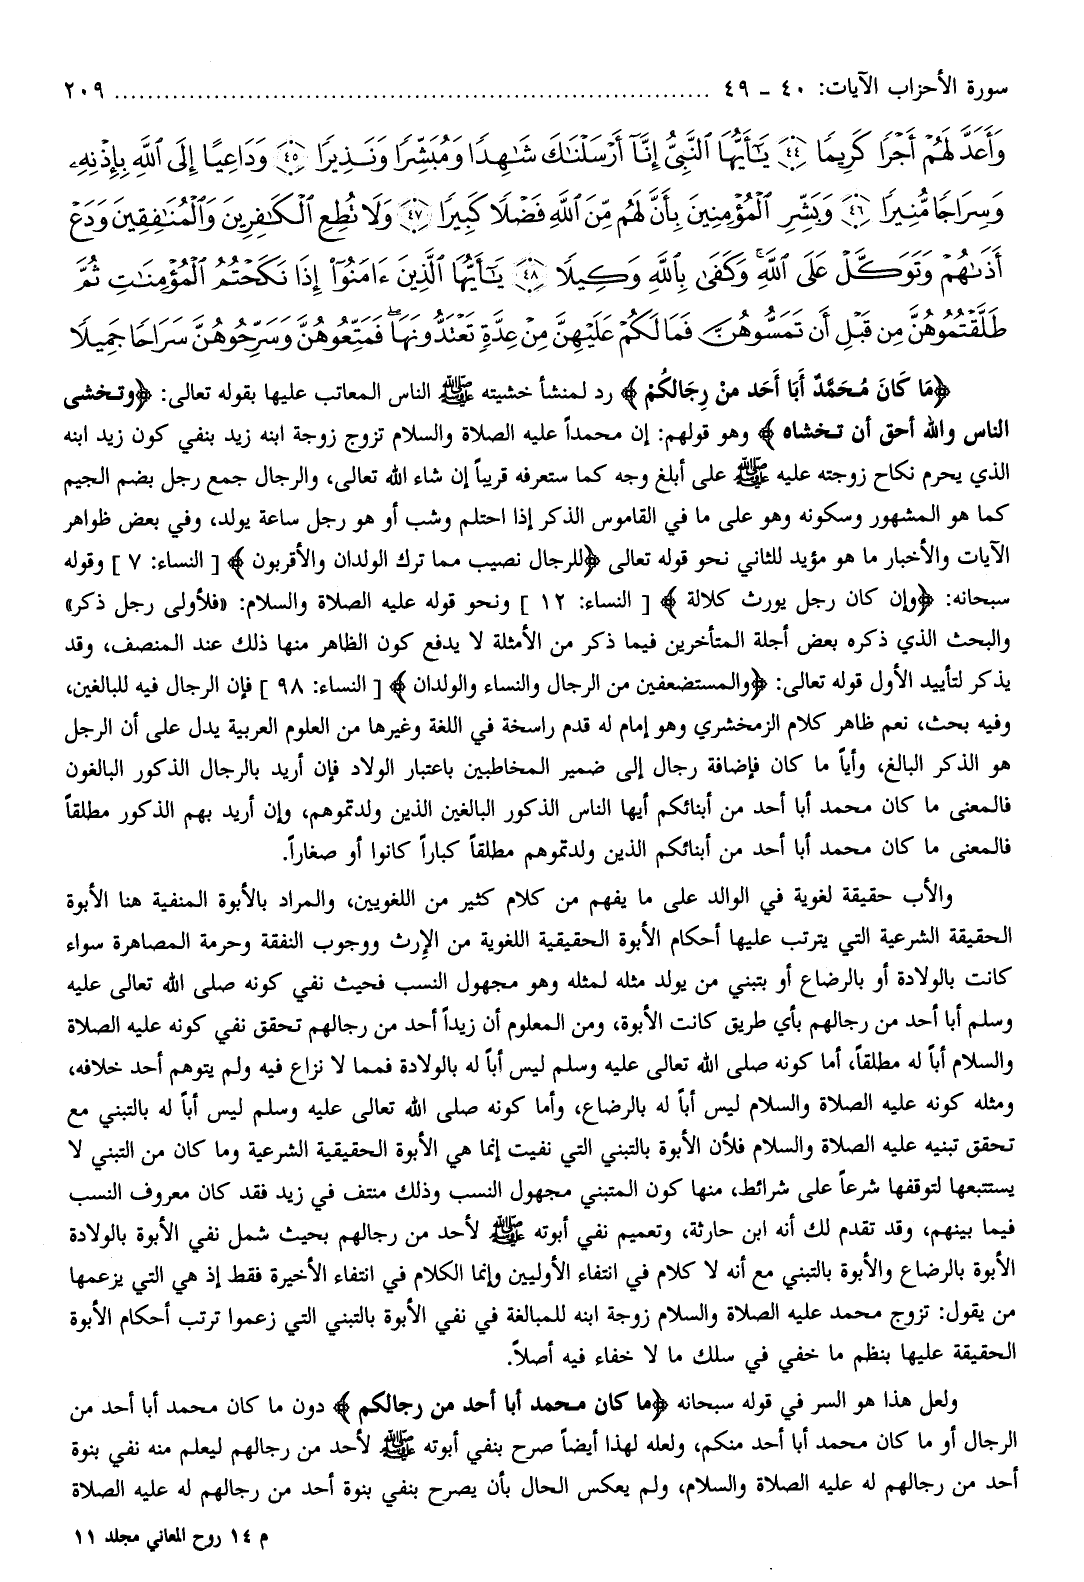 سورة الأحزاب الآيات: ٤٠ - ٤٩ ........................................................................ ٢٠٩
وَأَعَدَّ لَهُمْ أَجْرًا كَرِيمًا ﴿٤٤﴾ يَٰٓأَيُّهَا ٱلنَّبِىُّ إِنَّآ أَرْسَلْنَٰكَ شَٰهِدًا وَمُبَشِّرًا وَنَذِيرًا ﴿٤٥﴾ وَدَاعِيًا إِلَى ٱللَّهِ بِإِذْنِهِۦ
وَسِرَاجًا مُّنِيرًا ﴿٤٦﴾ وَبَشِّرِ ٱلْمُؤْمِنِينَ بِأَنَّ لَهُم مِّنَ ٱللَّهِ فَضْلًا كَبِيرًا ﴿٤٧﴾ وَلَا تُطِعِ ٱلْكَٰفِرِينَ وَٱلْمُنَٰفِقِينَ وَدَعْ
أَذَىٰهُمْ وَتَوَكَّلْ عَلَى ٱللَّهِ ۚ وَكَفَىٰ بِٱللَّهِ وَكِيلًا ﴿٤٨﴾ يَٰٓأَيُّهَا ٱلَّذِينَ ءَامَنُوٓا۟ إِذَا نَكَحْتُمُ ٱلْمُؤْمِنَٰتِ ثُمَّ
طَلَّقْتُمُوهُنَّ مِن قَبْلِ أَن تَمَسُّوهُنَّ فَمَا لَكُمْ عَلَيْهِنَّ مِنْ عِدَّةٍ تَعْتَدُّونَهَا ۖ فَمَتِّعُوهُنَّ وَسَرِّحُوهُنَّ سَرَاحًا جَمِيلًا
﴿مَا كَانَ مُحَمَّدٌ أَبَا أَحَد منْ رِجَالكُمْ﴾ رد لمنشأ خشيته ﷺ الناس المعاتب عليها بقوله تعالى: ﴿وتخشى
الناس والله أحق أن تخشاه﴾ وهو قولهم: إن محمداً عليه الصلاة والسلام تزوج زوجة ابنه زيد بنفي كون زيد ابنه
الذي يحرم نكاح زوجته عليه ﷺ على أبلغ وجه كما ستعرفه قريباً إن شاء الله تعالى، والرجال جمع رجل بضم الجيم
كما هو المشهور وسكونه وهو على ما في القاموس الذكر إذا احتلم وشب أو هو رجل ساعة يولد، وفي بعض ظواهر
الآيات والأخبار ما هو مؤيد للثاني نحو قوله تعالى ﴿للرجال نصيب مما ترك الولدان والأقربون﴾ [ النساء: ٧ ] وقوله
سبحانه: ﴿وإن كان رجل يورث كلالة﴾ [ النساء: ١٢ ] ونحو قوله عليه الصلاة والسلام: «فلأولى رجل ذكر»
والبحث الذي ذكره بعض أجلة المتأخرين فيما ذكر من الأمثلة لا يدفع كون الظاهر منها ذلك عند المنصف، وقد
يذكر لتأييد الأول قوله تعالى: ﴿والمستضعفين من الرجال والنساء والولدان﴾ [ النساء: ٩٨ ] فإن الرجال فيه للبالغين،
وفيه بحث، نعم ظاهر كلام الزمخشري وهو إمام له قدم راسخة في اللغة وغيرها من العلوم العربية يدل على أن الرجل
هو الذكر البالغ، وأياً ما كان فإضافة رجال إلى ضمير المخاطبين باعتبار الولاد فإن أريد بالرجال الذكور البالغون
فالمعنى ما كان محمد أبا أحد من أبنائكم أيها الناس الذكور البالغين الذين ولدتموهم، وإن أريد بهم الذكور مطلقاً
فالمعنى ما كان محمد أبا أحد من أبنائكم الذين ولدتموهم مطلقاً كباراً كانوا أو صغاراً.
والأب حقيقة لغوية في الوالد على ما يفهم من كلام كثير من اللغويين، والمراد بالأبوة المنفية هنا الأبوة
الحقيقة الشرعية التي يترتب عليها أحكام الأبوة الحقيقية اللغوية من الإرث ووجوب النفقة وحرمة المصاهرة سواء
كانت بالولادة أو بالرضاع أو بتبني من يولد مثله لمثله وهو مجهول النسب فحيث نفي كونه صلى الله تعالى عليه
وسلم أبا أحد من رجالهم بأي طريق كانت الأبوة، ومن المعلوم أن زيداً أحد من رجالهم تحقق نفي كونه عليه الصلاة
والسلام أباً له مطلقاً، أما كونه صلى الله تعالى عليه وسلم ليس أباً له بالولادة فمما لا نزاع فيه ولم يتوهم أحد خلافه،
ومثله كونه عليه الصلاة والسلام ليس أباً له بالرضاع، وأما كونه صلى الله تعالى عليه وسلم ليس أباً له بالتبني مع
تحقق تبنيه عليه الصلاة والسلام فلأن الأبوة بالتبني التي نفيت إنما هي الأبوة الحقيقية الشرعية وما كان من التبني لا
يستتبعها لتوقفها شرعاً على شرائط، منها كون المتبني مجهول النسب وذلك منتف في زيد فقد كان معروف النسب
فيما بينهم، وقد تقدم لك أنه ابن حارثة، وتعميم نفي أبوته ﷺ لأحد من رجالهم بحيث شمل نفي الأبوة بالولادة
الأبوة بالرضاع والأبوة بالتبني مع أنه لا كلام في انتفاء الأوليين وإنما الكلام في انتفاء الأخيرة فقط إذ هي التي يزعمها
من يقول: تزوج محمد عليه الصلاة والسلام زوجة ابنه للمبالغة في نفي الأبوة بالتبني التي زعموا ترتب أحكام الأبوة
الحقيقة عليها بنظم ما خفي في سلك ما لا خفاء فيه أصلاً.
ولعل هذا هو السر في قوله سبحانه ﴿ما كان محمد أبا أحد من رجالكم﴾ دون ما كان محمد أبا أحد من
الرجال أو ما كان محمد أبا أحد منكم، ولعله لهذا أيضاً صرح بنفي أبوته ﷺ لأحد من رجالهم ليعلم منه نفي بنوة
أحد من رجالهم له عليه الصلاة والسلام، ولم يعكس الحال بأن يصرح بنفي بنوة أحد من رجالهم له عليه الصلاة
م ١٤ روح المعاني مجلد ١١